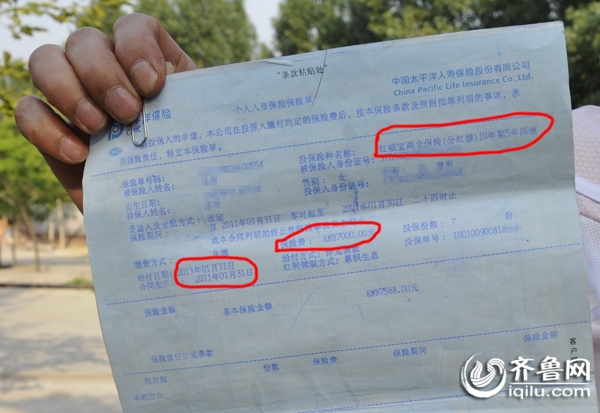 "条款粘贴处"
中国太平洋人寿保险股份有限公司
China Pacific Life Insurance Co., Ltd.
洋保险
个人人身保险保险单
投保人的申请，本公司在投保人缴付约定的保险费后，按本保险条款及所附批单列明的事项，承
担保险责任，特立本保险单。
保险单号码：
投保险种名称：红福宝两全保险(分红型)10年期5年限缴
被保险人姓名：
被保险人身份证号：
出生日期：
性别：女
投保人姓名：
投保人身份证号：
受益人及分配方式：法定
保险期间：
2011年01月31日 零时起至 2021年01月30日 二十四时止
或本合同列明的终止性
保险费：RMB7000.00元
投保份数：7 份
缴费方式：年缴
给付方式：
投保单号：10010090081
给付日期：2013年01月31日
红利领取方式：累积生息
2011年01月31日
保险金额
基本保险金额
RMB7588.00元
保险责任见条款
附加险
份数
保险费
保险期间
保险金额
客户
齐鲁网
iqilu.com